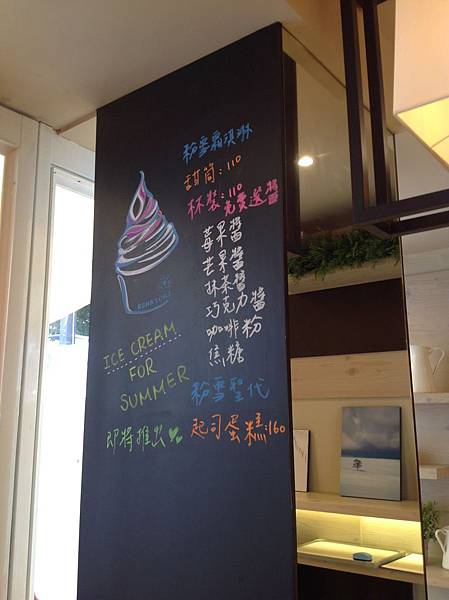 粉雪霜淇淋
甜筒:110
杯裝:110
免費選醬
莓果醬
芒果醬
抹茶醬
巧克力醬
咖啡粉
焦糖
ICE CREAM
FOR
SUMMER
粉雪聖代
即將推出
起司蛋糕:160